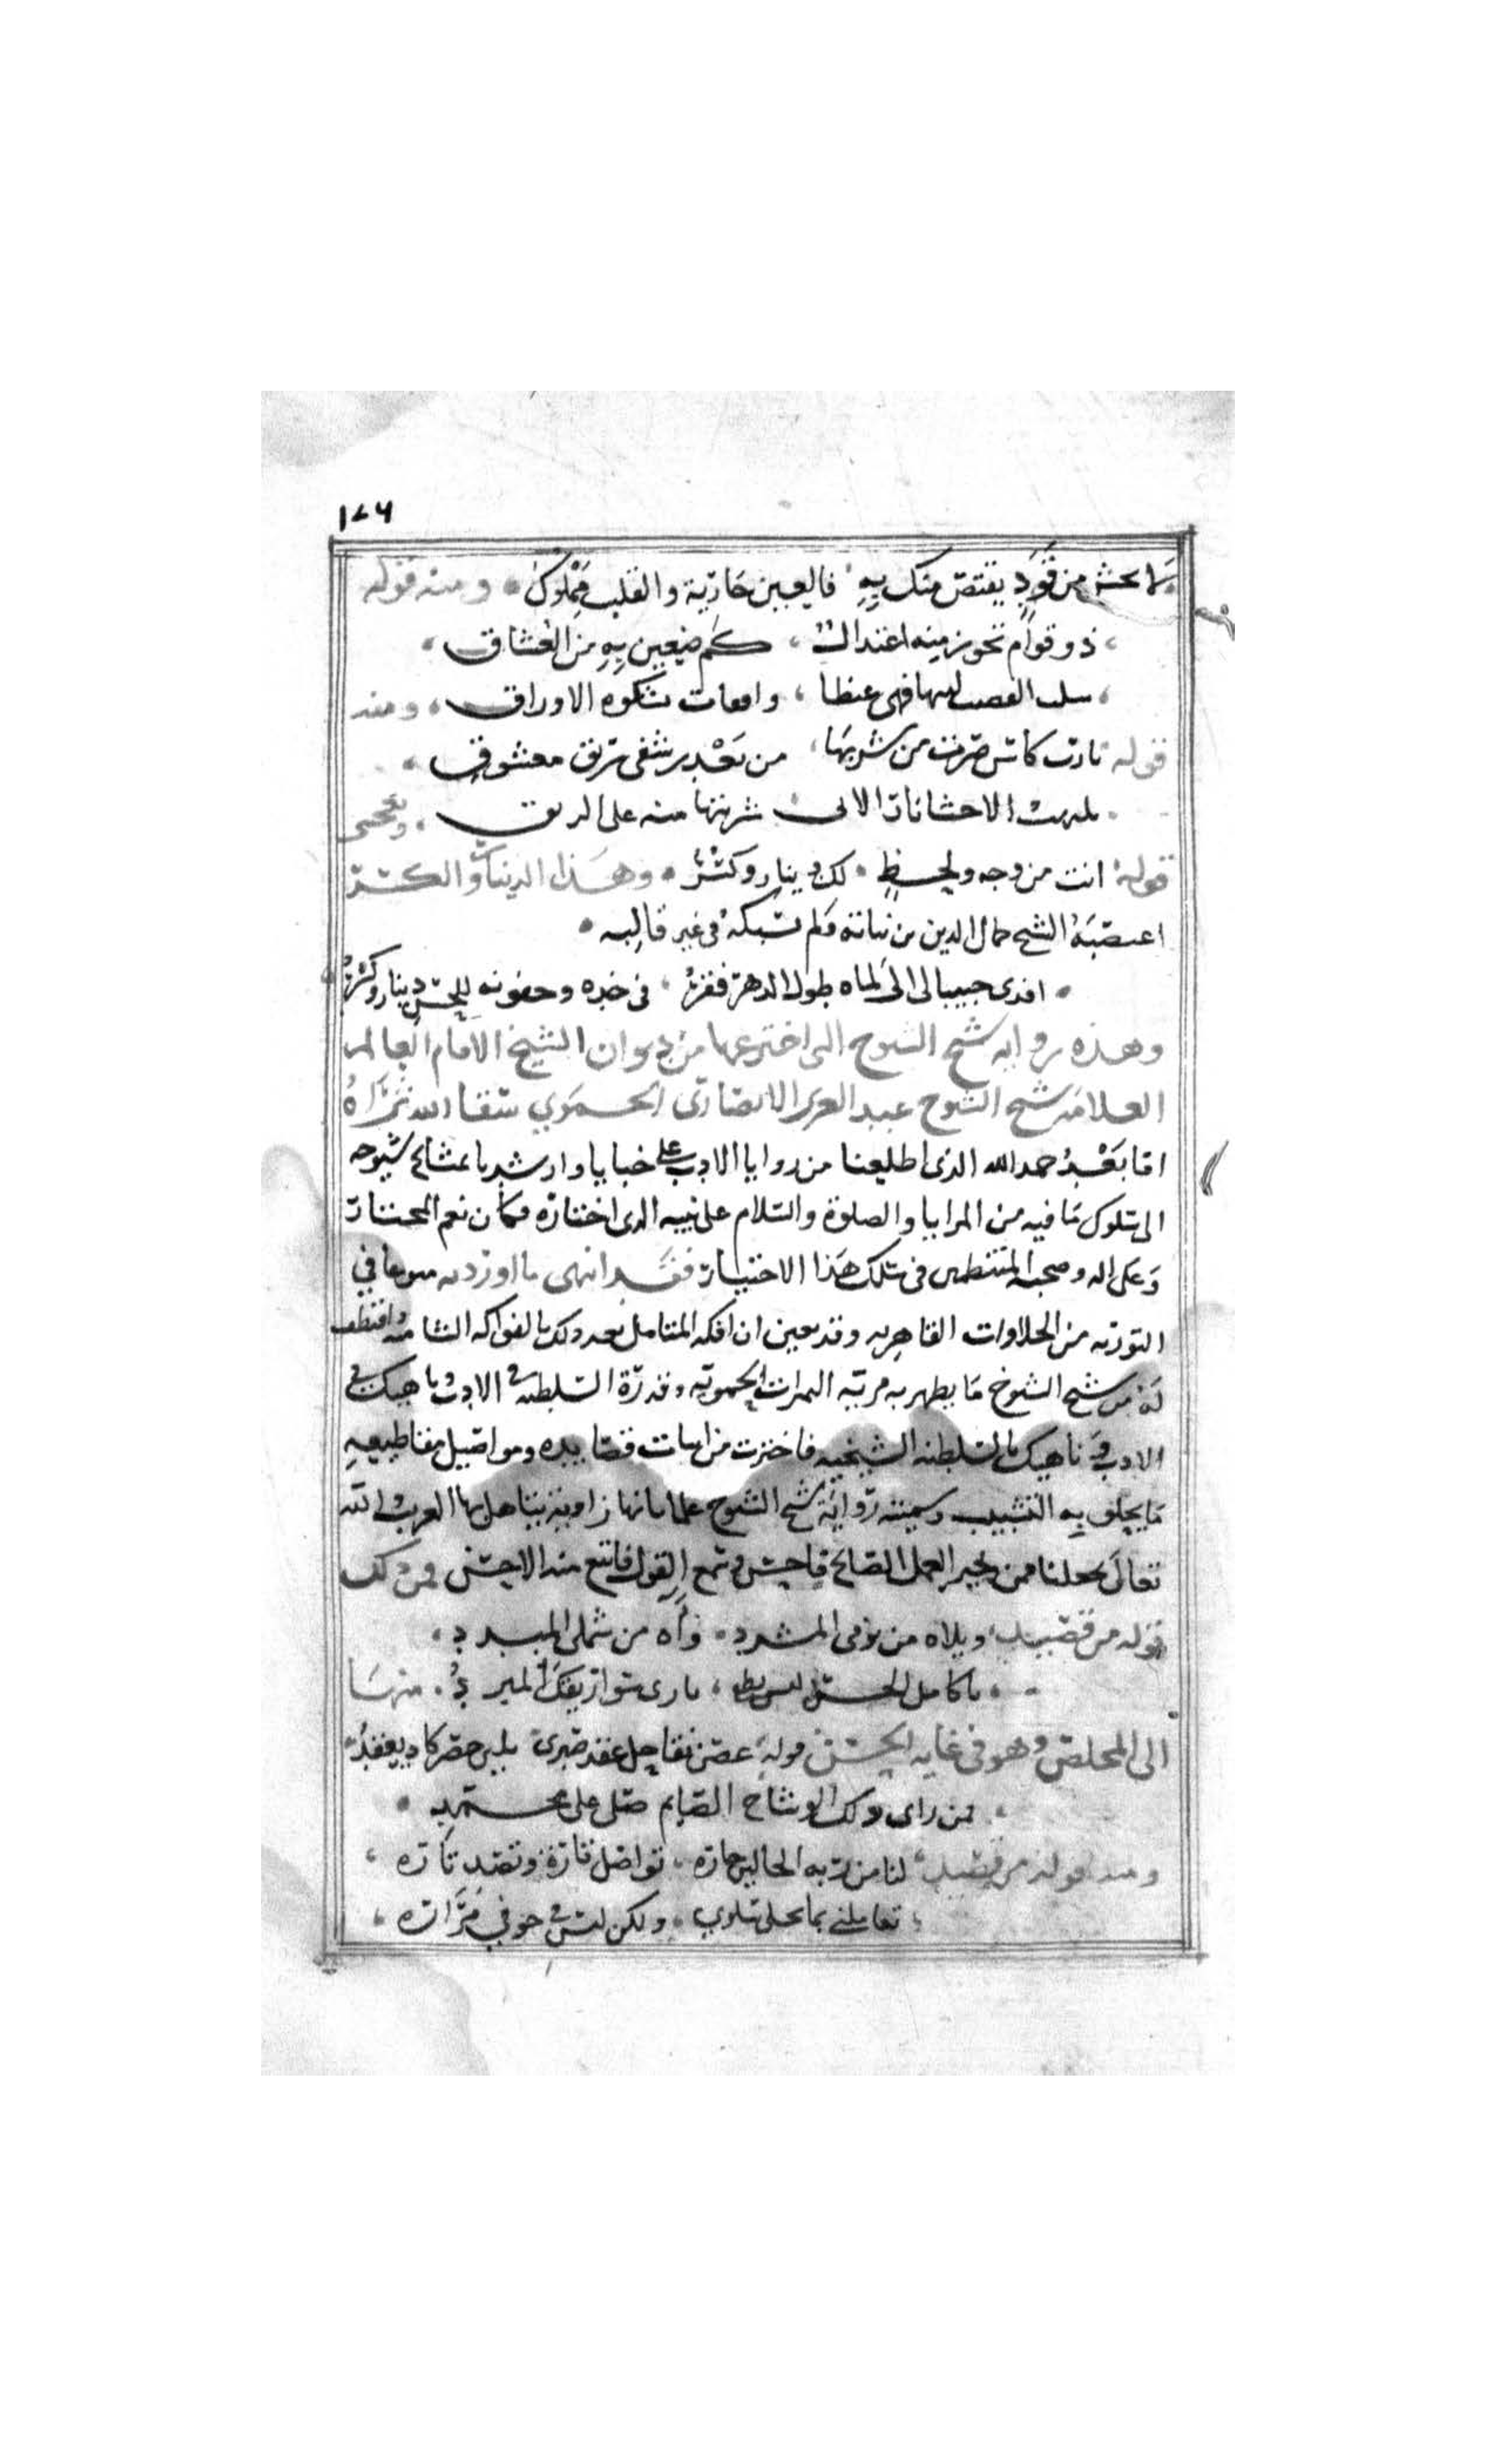 ١٧٦
لا تخش من قود يقتص منك به فالعين جارية والقلب مملوك ومنه قوله
ذو قوام تحوز منه اعتدال كم ضعين به من العشاق
سلب القضب لينها فهي غيظا واقفات تشكوه الاوراق ومنه
قوله نارت كاس صرفت من شربها من بعد رشفي ريق معشوق
الاحشا نارا لاني شربتها منه على الريق ويعجبني
قوله انت من وجه ولحظ لك دينار وكسر وهذا الدينار والكسر
اغتصبه الشيخ جمال الدين بن نباته ولم يسبكه في غير قالبه
افدي حبيبا لى الى لماه طول الدهر فقر في خده وجفونه للحسن دينار وكسر
وهذه رواية شيخ الشيوخ التي اخترعها من ديوان الشيخ الامام العالم
العلامه شيخ الشيوخ عبد العزيز الانصاري الحموي سقا الله ثراه
اما بعد حمد الله الذي اطلعنا من زوايا الادب على خبايا وارشدنا بمشايخ شيوخه
الى سلوك ما فيه من المزايا والصلوة والسلام على نبيه الذي اختاره فكان نعم المختار
وعلى اله وصحبه المنتظمين في سلك هذا الاختيار فقد انتهى ما اوردته في
التوريه من الحلاوات القاهريه وقد تعين ان افكه المتامل بعد ذلك بالفواكه الشاميه واقتطف
له من شيخ الشيوخ ما يظهر به مرتبه الثمرات الحمويه وقدرة السلطنه في الادب ناهيك في
الادب ناهيك بالسلطنه الشيخيه فاخترت من ابيات قصايده ومواصيل مقاطيعه
ما يحلو به التشبيب وسميته رواية شيخ الشيوخ علما بانها زاوية يتاهل بها الغريب والله
تعالى يجعلنا ممن بخير العمل الصالح وسمع القول فاتبع منه الاحسن فمن ذلك
قوله من قصيده ويلاه من نومي المشرد واه من شملي المبدد
يا كامل الحسن ليس يطفي ناري سوا ريقك المبرد منها
الى المخلص وهو في غايه الحسن قوله غصن نقا حل عقد صبري بلين خصر كاد يعقد
فمن راى ذلك الوشاح الصايم صلى على محمد
ومنه قوله من قصيده لنا من ربه الخالين جاره تواصل تارة وتصد تاره
تعاملني بما يحلي سلوي ولكن ليس في جوفي مراره